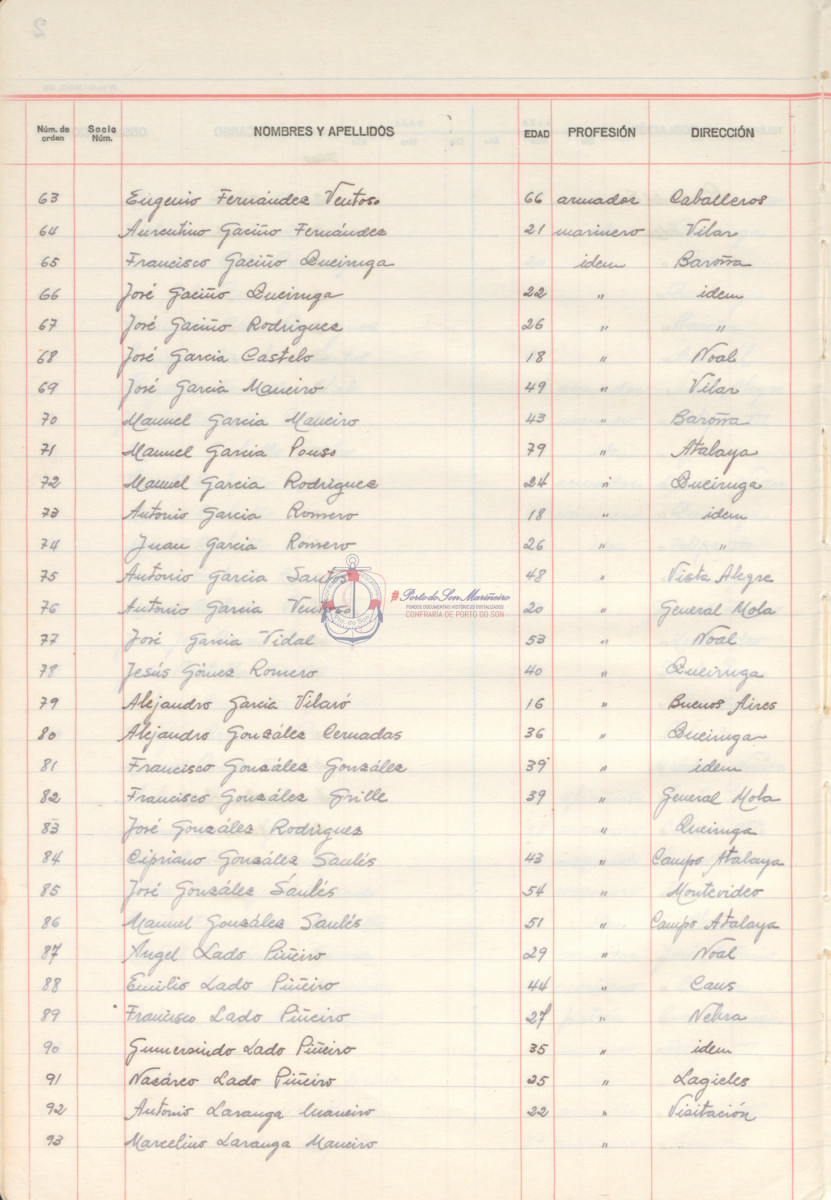 Núm. de orden Socio Núm. NOMBRES Y APELLIDOS EDAD PROFESIÓN DIRECCIÓN
63 Eugenio Fernández Ventoso 66 armador Caballeros
64 Aurentino Gaciño Fernández 21 marinero Vilar
65 Francisco Gaciño Queiruga idem Baroña
66 José Gaciño Queiruga 22 " idem
67 José Gaciño Rodríguez 26 " "
68 José García Castelo 18 " Noal
69 José García Maneiro 49 " Vilar
70 Manuel García Maneiro 43 " Baroña
71 Manuel García Pouso 79 " Atalaya
72 Manuel García Rodríguez 24 " Queiruga
73 Antonio García Romero 18 " idem
74 Juan García Romero 26 " "
75 Antonio García Santos 48 " Vista Alegre
76 Antonio García Ventoso 20 " General Mola
77 José García Vidal 53 " Noal
78 Jesús Gómez Romero 40 " Queiruga
79 Alejandro García Vilaró 16 " Buenos Aires
80 Alejandro González Cernadas 36 " Queiruga
81 Francisco González González 39 " idem
82 Francisco González Grille 39 " General Mola
83 José González Rodríguez " Queiruga
84 Cipriano González Saulés 43 " Campo Atalaya
85 José González Saulés 54 " Montevideo
86 Manuel González Saulés 51 " Campo Atalaya
87 Angel Lado Piñeiro 29 " Noal
88 Emilio Lado Piñeiro 44 " Caus
89 Francisco Lado Piñeiro 27 " Nebra
90 Gumersindo Lado Piñeiro 35 " idem
91 Nazareo Lado Piñeiro 25 " Lagieles
92 Antonio Laranga Maneiro 22 " Visitación
93 Marcelino Laranga Maneiro "
#Porto do Son Mariñeiro
FONDOS DOCUMENTAIS HISTÓRICOS DIXITALIZADOS
CONFRARÍA DE PORTO DO SON